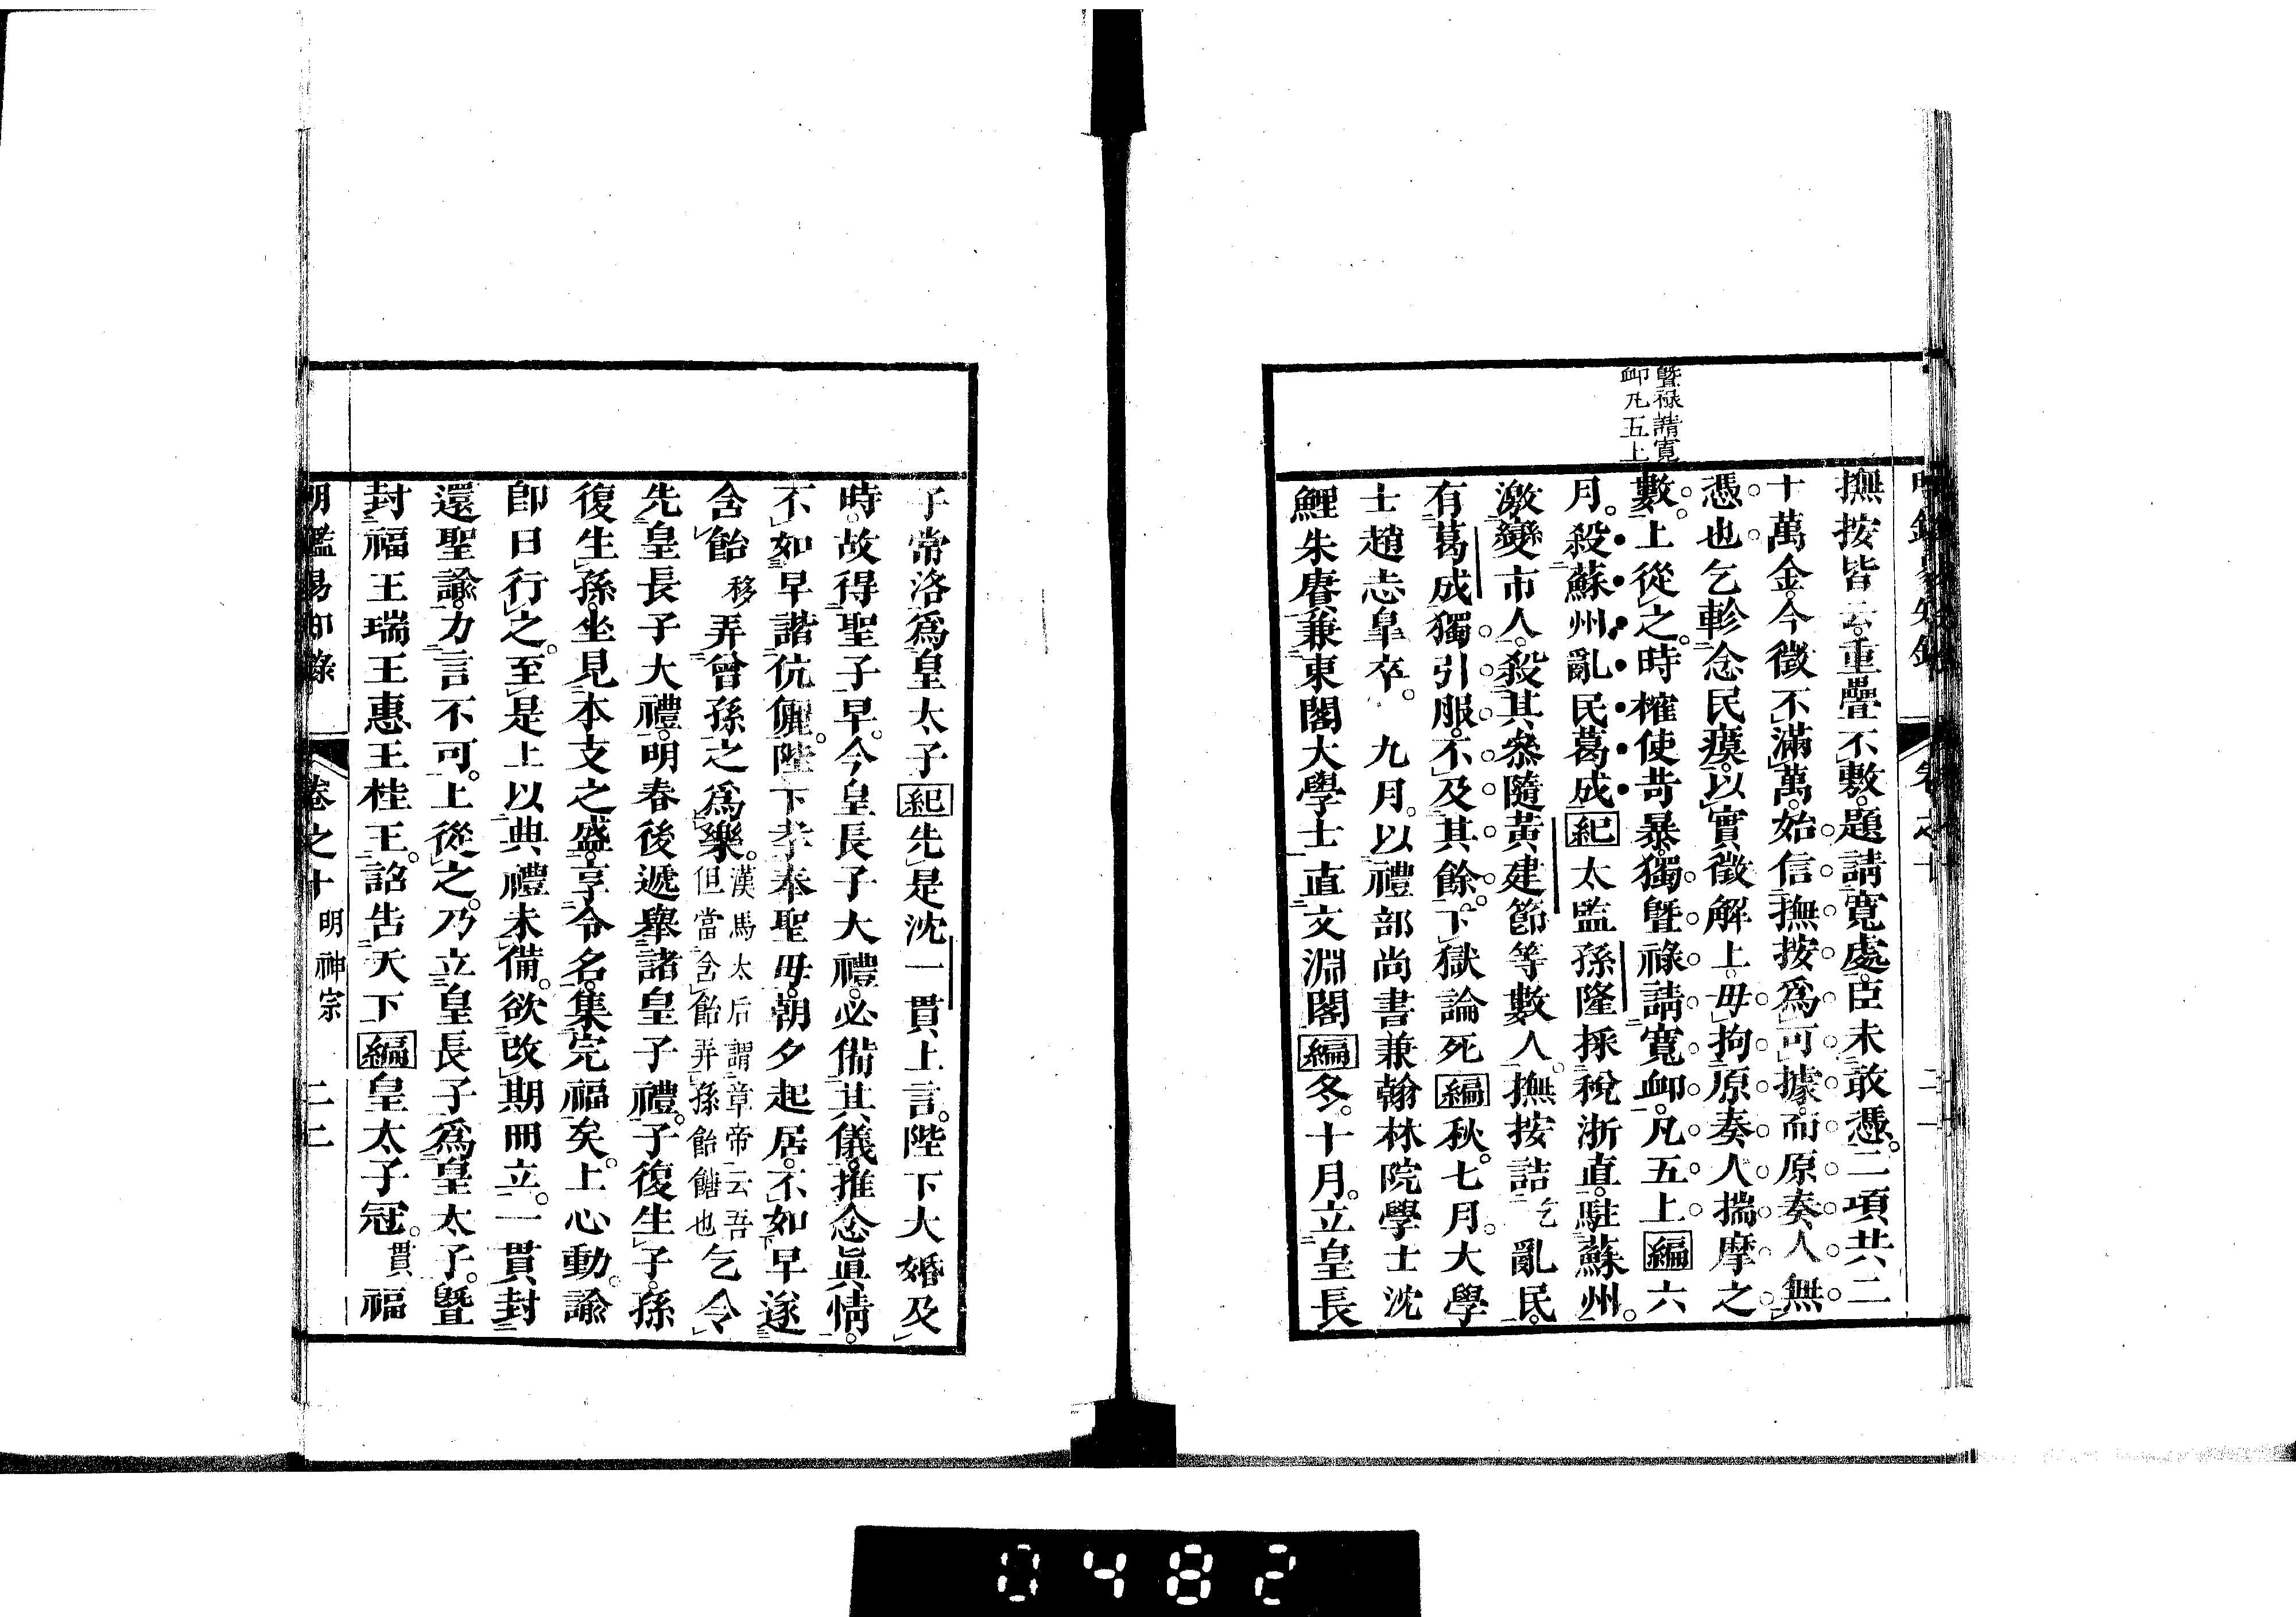 暨祿請寬
卹凡五上
撫按皆云重疊不敷題請寬處臣未敢憑二項共二
十萬金今徵不滿萬始信撫按爲可據而原奏人無
憑也乞軫念民瘼以實徵解上毋拘原奏人揣摩之
數上從之時榷使苛暴獨暨祿請寬卹凡五上編六
月殺蘇州亂民葛成紀太監孫隆採稅浙直駐蘇州
激變市人殺其參隨黃建節等數人撫按詰乞亂民
有葛成獨引服不及其餘下獄論死編秋七月大學
士趙志皐卒 九月以禮部尚書兼翰林院學士沈
鯉朱賡兼東閣大學士直文淵閣編冬十月立皇長
子常洛爲皇太子紀先是沈一貫上言陛下大婚及
時故得聖子早今皇長子大禮必備其儀推念眞情
不如早諧伉儷陛下孝奉聖母朝夕起居不如早遂
含飴移弄曾孫之爲樂漢馬太后謂章帝云吾但當含飴弄孫飴餹也乞令
先皇長子大禮明春後遞舉諸皇子禮子復生子孫
復生孫坐見本支之盛享令名集完福矣上心動諭
卽日行之至是上以典禮未備欲改期冊立一貫封
還聖諭力言不可上從之乃立皇長子爲皇太子暨
封福王瑞王惠王桂王詔告天下編皇太子冠貫福
明鑑易知錄 卷之十 明神宗 二二